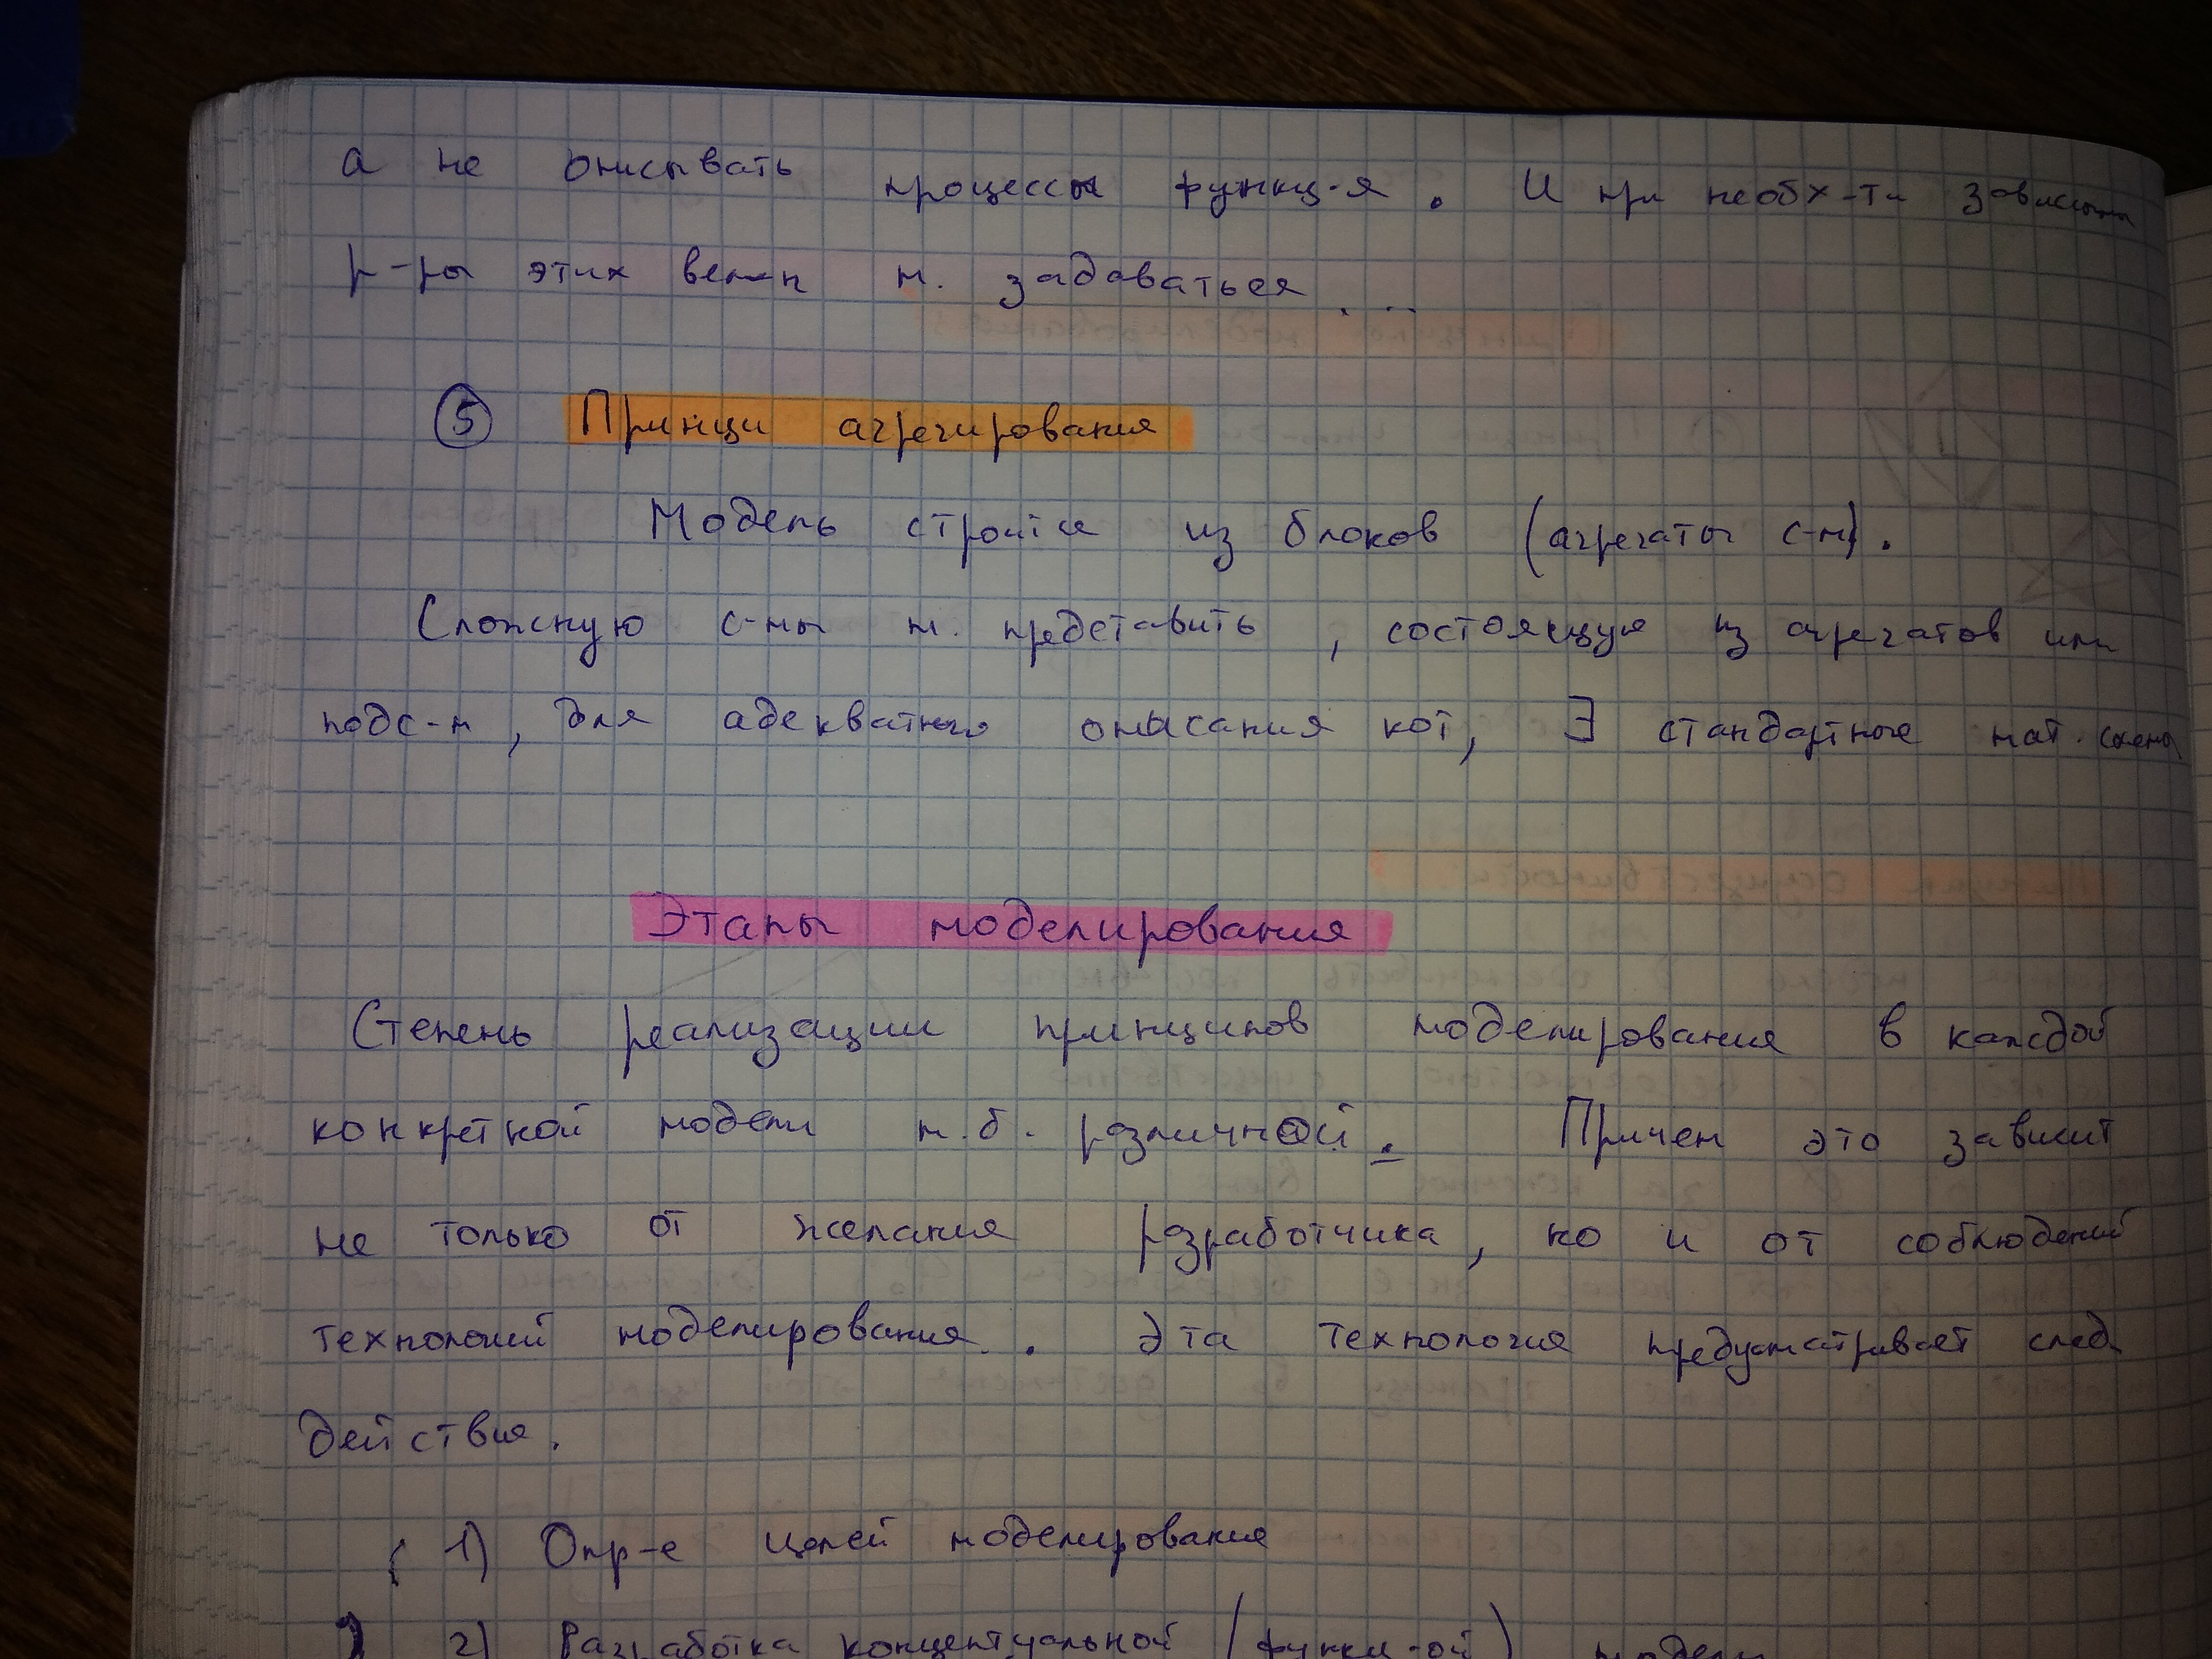 а не описывать процессы функц-я. И при необх-ти зависимы
р-ры этих велич м. задаваться ...
⑤ Принци агрегирования
Модель строится из блоков (агрегаты с-м).
Сложную с-мы м. представить, состоящую из агрегатов или
подс-м, для адекватного описания кот, ∃ стандартные мат. схемы
Этапы моделирования
Степень реализации принципов моделирования в каждой
конкретной модели м.б. различной. Причем это зависит
не только от желания разработчика, но и от соблюдений
технологий моделирования. Эта технология предусматривает след.
действия.
1) Опр-е целей моделирования
2) Разработка концептуальной (функц-ой) модели